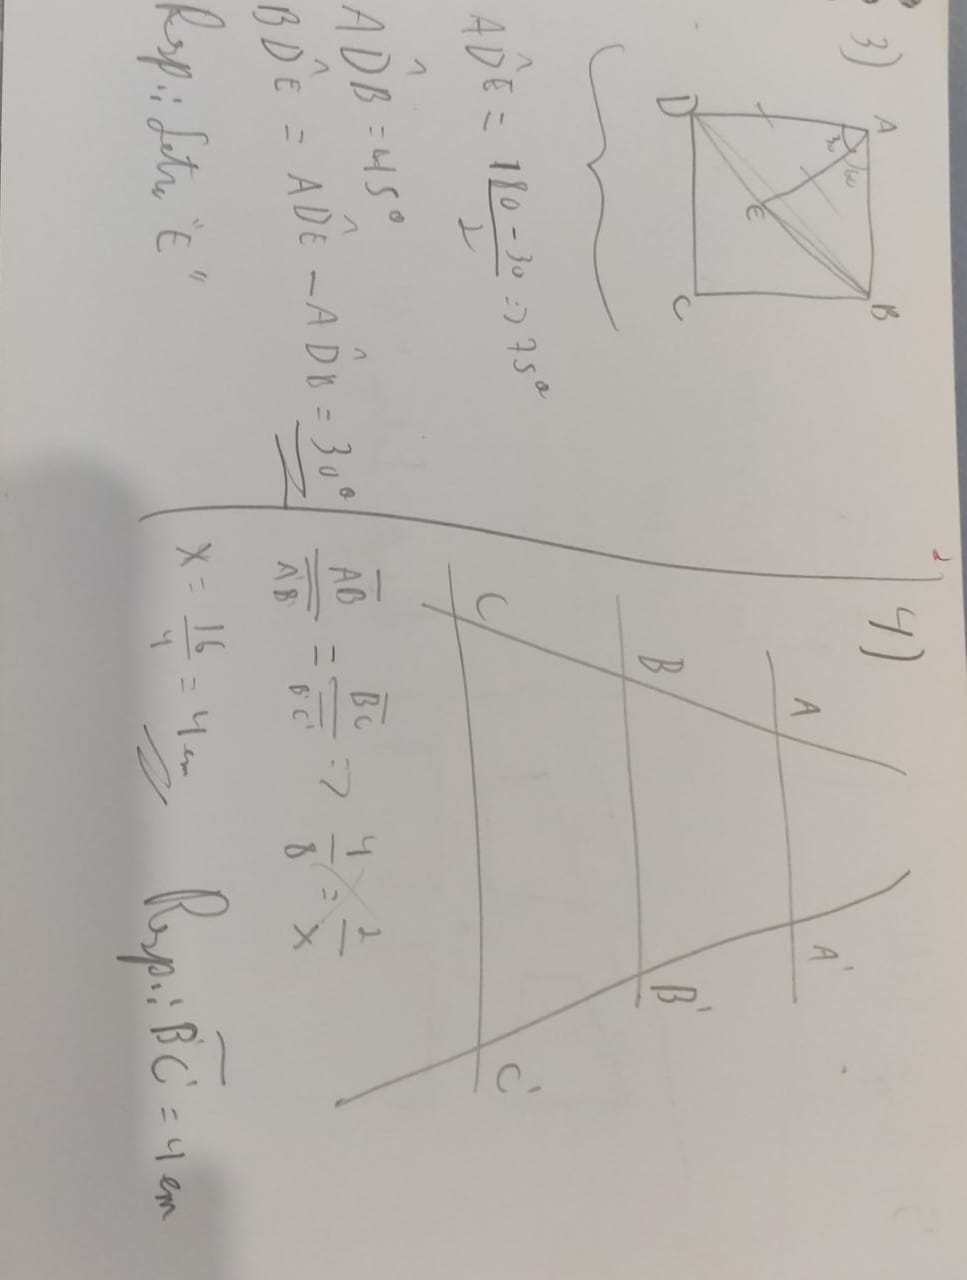 3)
A
B
30
60
E
D
C
AD̂E = 180-30/2 => 75°
AD̂B = 45°
BD̂E = AD̂E - AD̂B = 30°
Resp.: Letra "E"
4)
A
A'
B
B'
C
C'
AB/A'B' = BC/B'C' => 4/8 = 2/x
x = 16/4 = 4cm
Resp.: B'C' = 4 cm